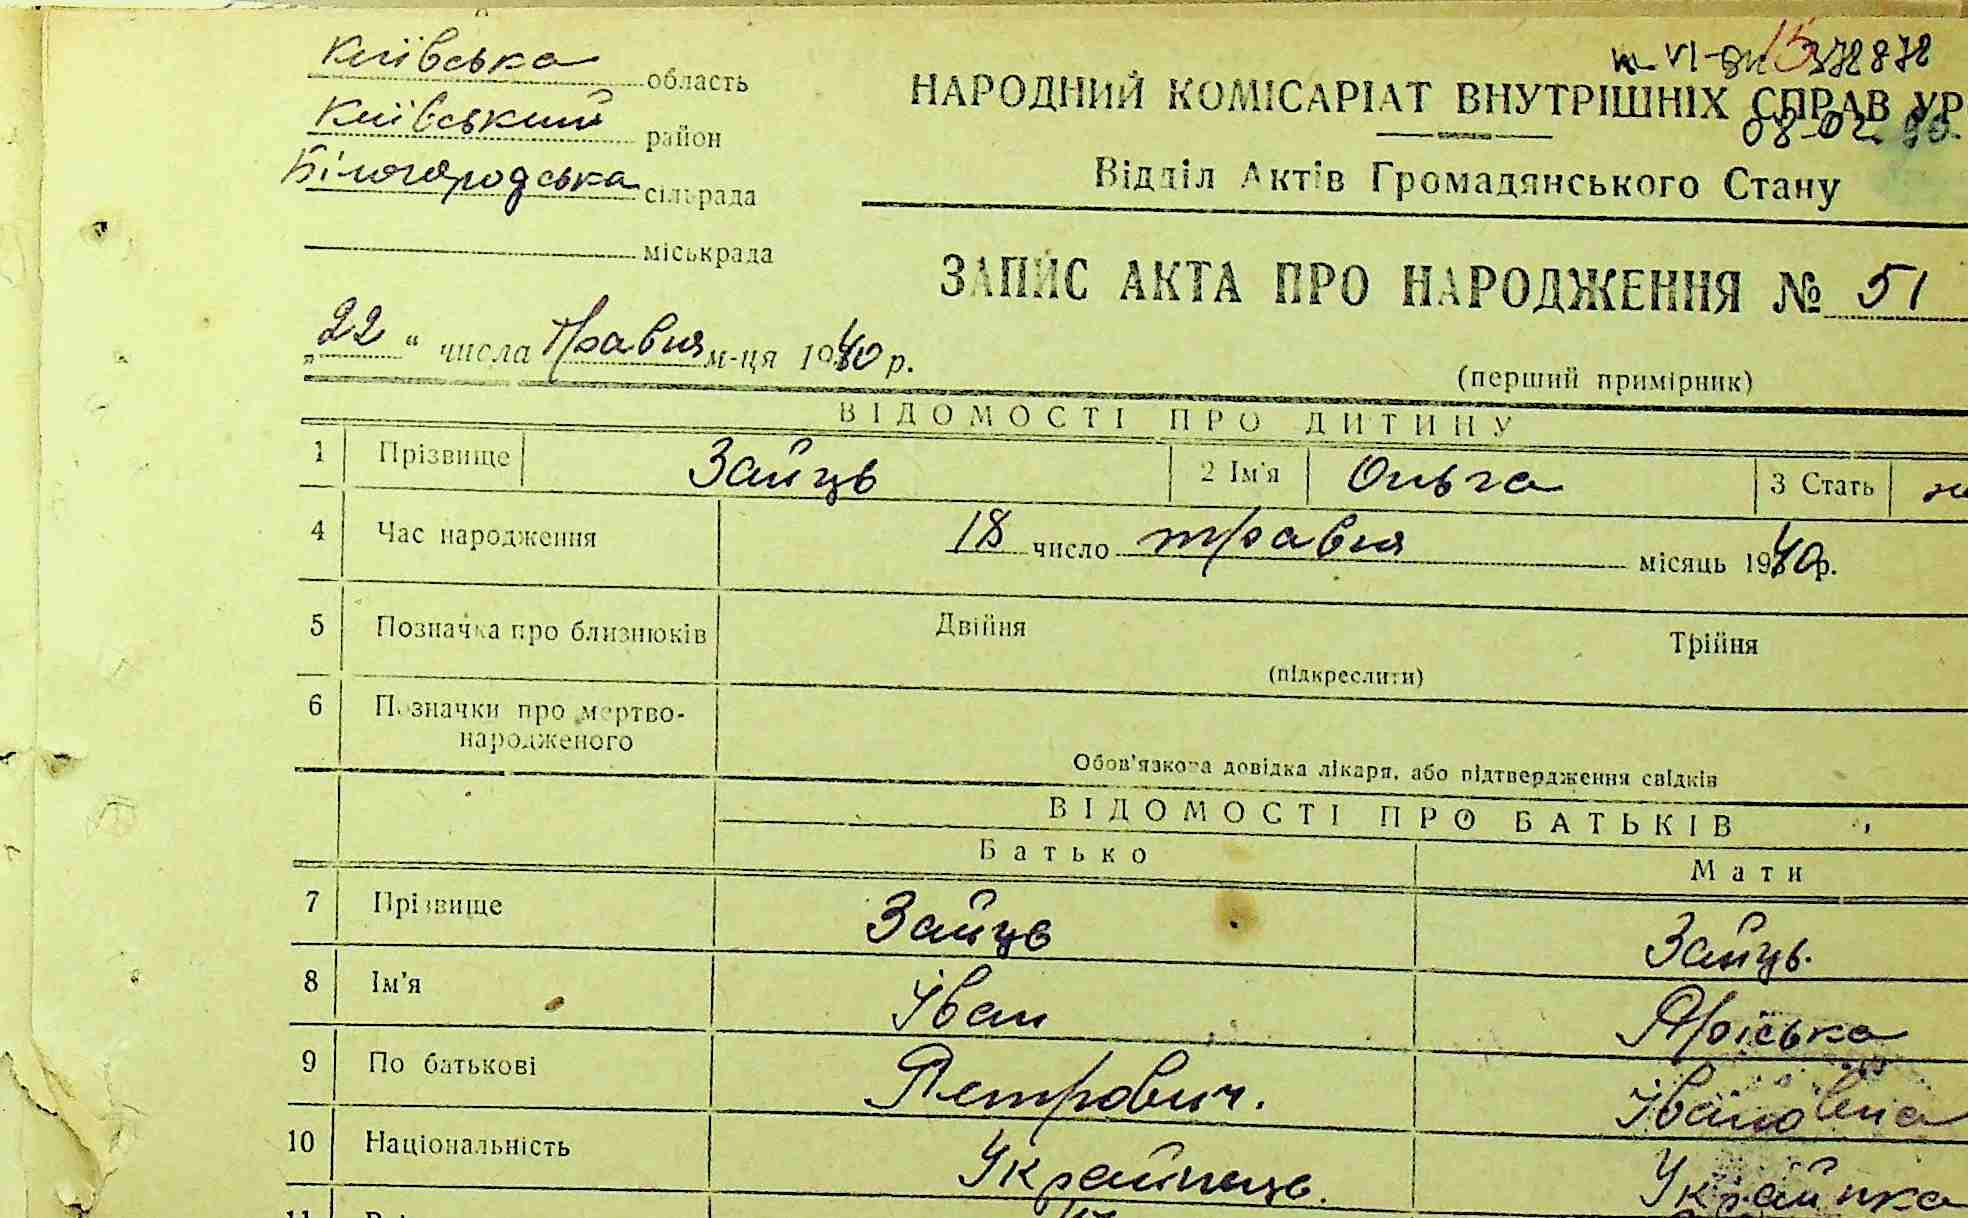 Київська область
Київський район
Білогородська сільрада
міськрада
"22" числа Травня м-ця 1940 р.
372872
НАРОДНИЙ КОМІСАРІАТ ВНУТРІШНІХ СПРАВ УР
08-02. 90.
Відділ Актів Громадянського Стану
ЗАПИС АКТА ПРО НАРОДЖЕННЯ № 51
(перший примірник)
ВІДОМОСТІ ПРО ДИТИНУ
1 Прізвище Зайць 2 Ім'я Ольга 3 Стать
4 Час народження 18 число травня місяць 1940р.
5 Позначка про близнюків Двійня Трійня
(підкреслити)
6 Позначки про мертво-
народженого
Обов'язкова довідка лікаря, або підтвердження свідків
ВІДОМОСТІ ПРО БАТЬКІВ
Батько Мати
7 Прізвище Зайць Зайць.
8 Ім'я Іван Яріська
9 По батькові Петрович. Івановна
10 Національність Українець. Українка
11